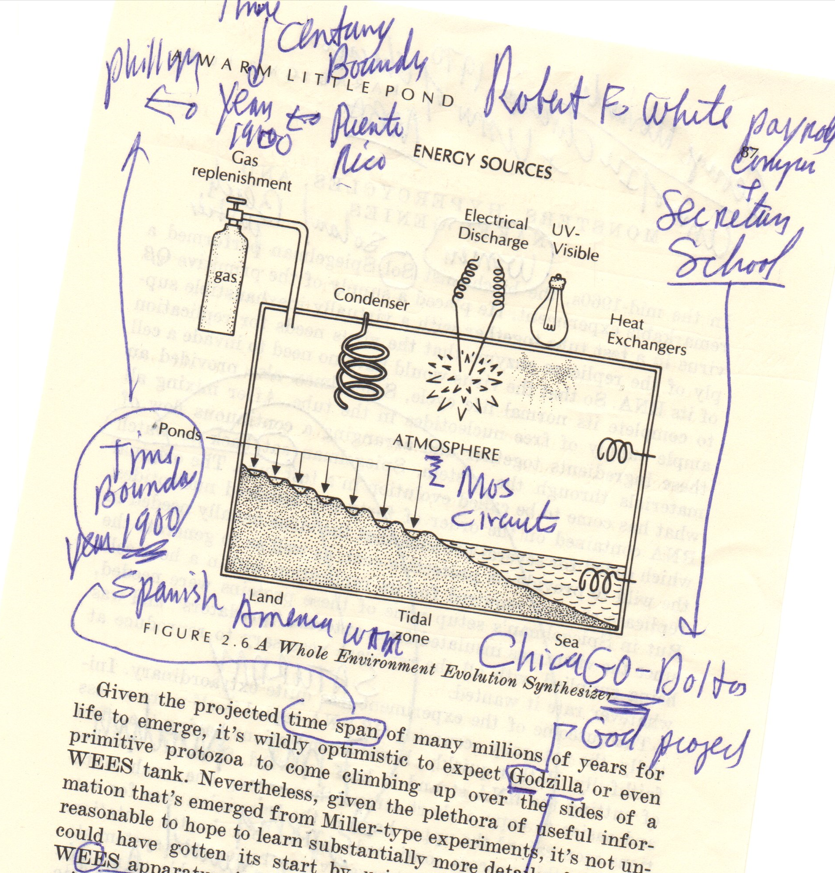 Century
Boundy
A WARM LITTLE POND
year
1900
Puerto
Rico
Robert F. White
87
+
School
ENERGY SOURCES
Gas
replenishment
gas
Condenser
Electrical
Discharge
UV-
Visible
Heat
Exchangers
Ponds
ATMOSPHERE
Mos
circuits
time
Boundary
year 1900
Spanish America
Land
Tidal
zone
Sea
FIGURE 2.6 A Whole Environment Evolution Synthesizer
ChicaGO-
- God project
Given the projected time span of many millions of years for
life to emerge, it's wildly optimistic to expect Godzilla or even
primitive protozoa to come climbing up over the sides of a
WEES tank. Nevertheless, given the plethora of useful infor-
mation that's emerged from Miller-type experiments, it's not un-
reasonable to hope to learn substantially more
could have gotten its start by
WEES